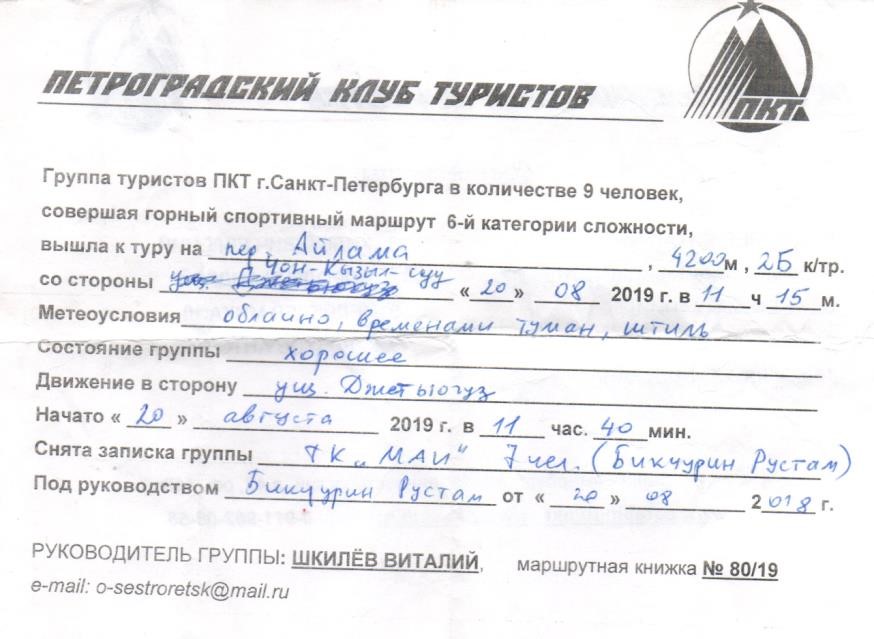 ПЕТРОГРАДСКИЙ КЛУБ ТУРИСТОВ
ПКТ
Группа туристов ПКТ г.Санкт-Петербурга в количестве 9 человек,
совершая горный спортивный маршрут 6-й категории сложности,
вышла к туру на пер. Айлама, 4200м, 2Б к/тр.
Чон-Кызыл-суу
со стороны ущ. Джетыогуз «20» 08 2019 г. в 11 ч 15 м.
Метеоусловия облачно, временами туман, штиль
Состояние группы хорошее
Движение в сторону ущ. Джетыогуз
Начато «20» августа 2019 г. в 11 час. 40 мин.
Снята записка группы ТК „МАИ" 7 чел. (Бикчурин Рустам)
Под руководством Бикчурин Рустам от «20» 08 2018 г.
РУКОВОДИТЕЛЬ ГРУППЫ: ШКИЛЁВ ВИТАЛИЙ, маршрутная книжка № 80/19
e-mail: o-sestroretsk@mail.ru